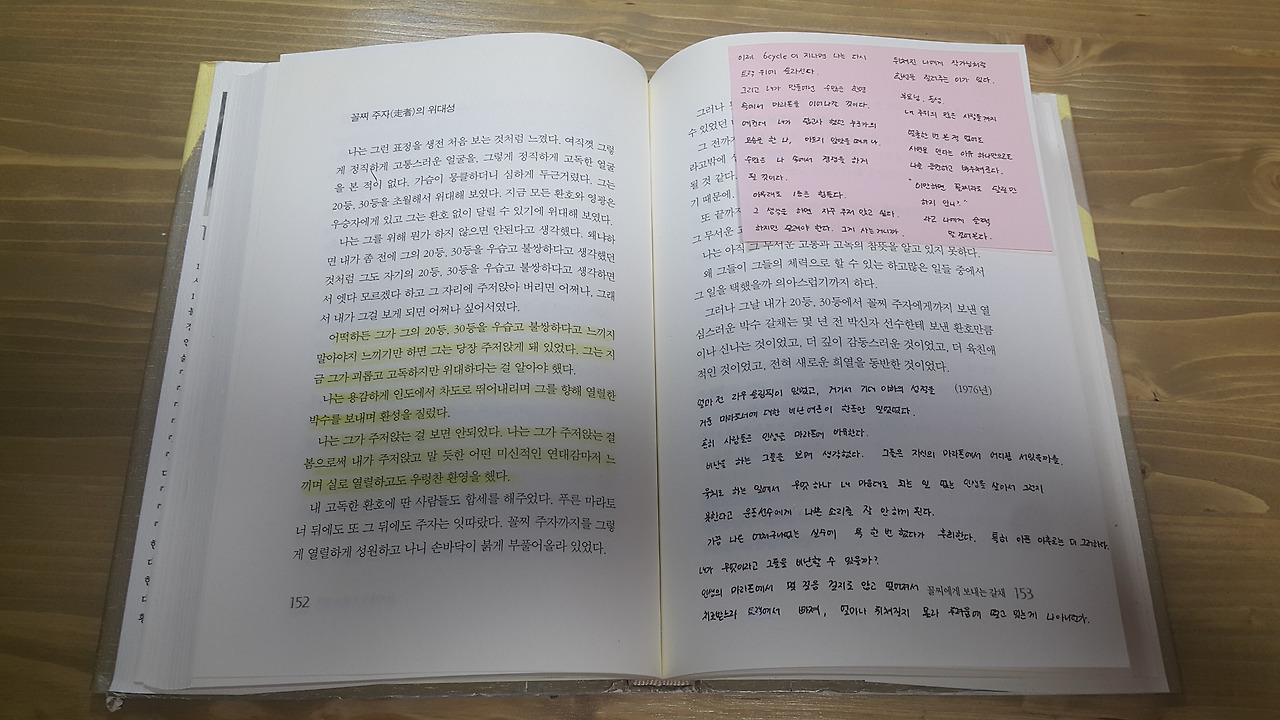 꼴찌 주자(走者)의 위대성
나는 그런 표정을 생전 처음 보는 것처럼 느꼈다. 여직껏 그렇
게 정직하게 고통스러운 얼굴을, 그렇게 정직하게 고독한 얼굴
을 본 적이 없다. 가슴이 뭉클하더니 심하게 두근거렸다. 그는
20등, 30등을 초월해서 위대해 보였다. 지금 모든 환호와 영광은
우승자에게 있고 그는 환호 없이 달릴 수 있기에 위대해 보였다.
나는 그를 위해 뭔가 하지 않으면 안된다고 생각했다. 왜냐하
면 내가 좀 전에 그의 20등, 30등을 우습고 불쌍하다고 생각했던
것처럼 그도 자기의 20등, 30등을 우습고 불쌍하다고 생각하면
서 엣다 모르겠다 하고 그 자리에 주저앉아 버리면 어쩌나, 그래
서 내가 그걸 보게 되면 어쩌나 싶어서였다.
어떡하든 그가 그의 20등, 30등을 우습고 불쌍하다고 느끼지
말아야지 느끼기만 하면 그는 당장 주저앉게 돼 있었다. 그는 지
금 그가 괴롭고 고독하지만 위대하다는 걸 알아야 했다.
나는 용감하게 인도에서 차도로 뛰어내리며 그를 향해 열렬한
박수를 보내며 환성을 질렀다.
나는 그가 주저앉는 걸 보면 안되었다. 나는 그가 주저앉는 걸
봄으로써 내가 주저앉고 말 듯한 어떤 미신적인 연대감마저 느
끼며 실로 열렬하고도 우렁찬 환영을 했다.
내 고독한 환호에 딴 사람들도 합세를 해주었다. 푸른 마라토
너 뒤에도 또 그 뒤에도 주자는 잇따랐다. 꼴찌 주자까지를 그렇
게 열렬하게 성원하고 나니 손바닥이 붉게 부풀어올라 있었다.
152
이제 6cycle이 지나면 나는 다시
트랙 위에 올라선다.
그리고 내가 만들어낸 수많은 환영
속에서 마라톤을 이어나갈 것이다.
수많은 나 속에서 경쟁을 하게
될 것이다.
아무래도 1등은 힘들다.
그 생각을 하면 자꾸 주저 앉고 싶다.
하지만 달려야 한다. 그게 사는거니까.
뒤처진 나에게 작가님처럼
환성을 질러주는 이가 있다.
부모님, 동생
내 주위의 많은 사람들까지
얼굴 한 번 본 적 없어도
나를 응원하고
"이만하면 꼴찌라도 달릴만
하지 않니?"
라고 나에게 슬쩍
말 걸어본다.
그러나
수 있었던
그 전까지
라고밖에
될 것 같다.
기 때문에
또 끝까지
그 무서운
나는 아직 그 무서운 고통과 고독의 참뜻을 알고 있지 못하다.
왜 그들이 그들의 체력으로 할 수 있는 하고많은 일들 중에서
그 일을 택했을까 의아스럽기까지 하다.
그러나 그날 내가 20등, 30등에서 꼴찌 주자에게까지 보낸 열
심스러운 박수 갈채는 몇 년 전 박신자 선수한테 보낸 환호만큼
이나 신나는 것이었고, 더 깊이 감동스러운 것이었고, 더 육친애
적인 것이었고, 전혀 새로운 희열을 동반한 것이었다.
(1976년)
얼마 전 리우 올림픽이 있었고, 거기서 기대 이하의 성적을
거둔 마라토너에 대한 비난 여론이 한동안 있었다.
흔히 사람들은 인생을 마라톤에 비유한다.
비난을 하는 그들을 보며 생각했다. 그들은 자신의 마라톤에서 어디쯤 서있을까.
하는 일에서 무엇 하나 내 마음대로 되는 일 없는 인생을 살아서 그런지
못한다고 운동선수에게 나쁜 소리를 잘 안하게 된다.
가끔 나는 어처구니없는 실수에 욕 한 번 했다가 후회한다. 특히 이튿 이후로는 더 그러하다.
내가 무엇이라고 그들을 비난할 수 있을까?
인생의 마라톤에서 몇 걸음 걷지도 않고
치료받느라 트랙에서 빠져, 얼마나 뒤처질지 몰라 두려움에 떨고 있는게 나 아니던가.
꼴찌에게 보내는 갈채 153